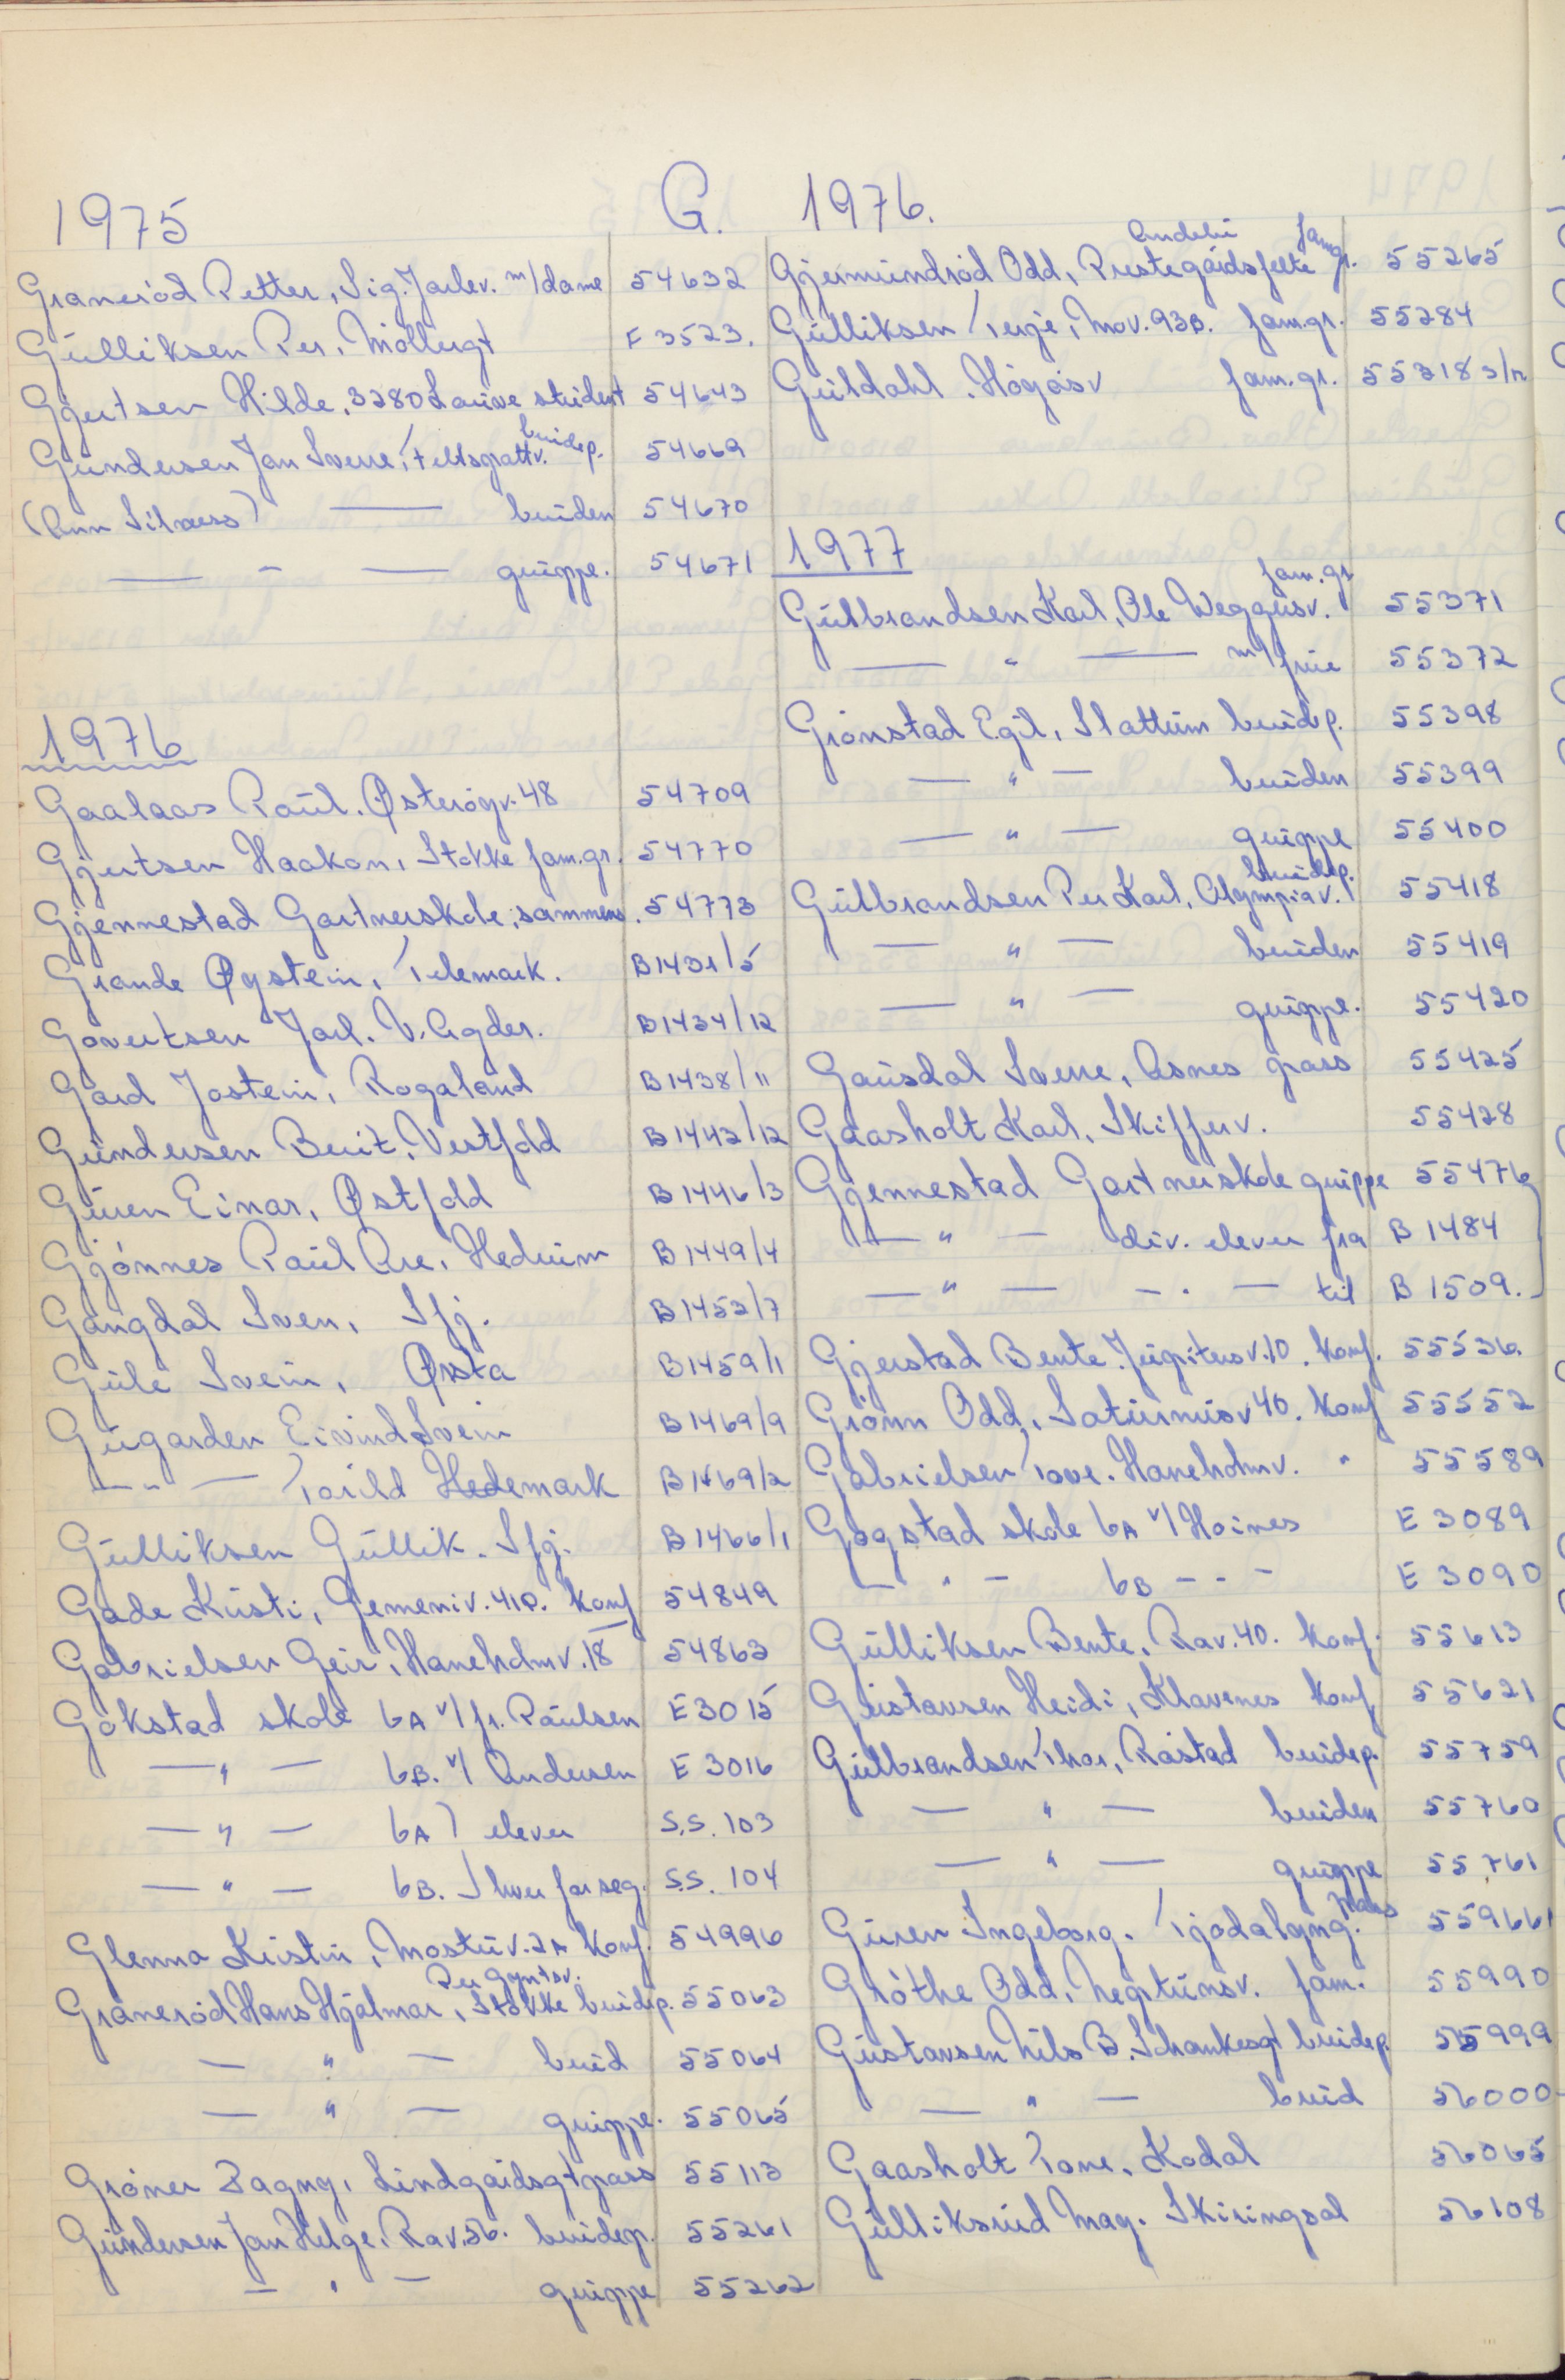 G.
1975
Granerød Petter, Sig. Jarlsv. m/dame 54632
Gulliksen Per, Møllergt E 3523.
Gjertsen Hilde, 3280 Lauve student 54643
Gundersen Jan Sverre, Feltspattv. brudep. 54669
(Ann Silnæss) — bruden 54670
— " — gruppe. 54671
1976
Gaalaas Paul. Østerøyv. 48 54709
Gjertsen Haakon, Stokke fam.gr. 54770
Gjennestad Gartnerskole, sammens. 54773
Grande Øystein, Telemark. B1431/5
Govertsen Jarl. V. Agder. B1434/12
Gard Jostein, Rogaland B1438/11
Gundersen Berit, Vestfold B1442/12
Guren Einar, Østfold B1446/3
Gjønnes Paul Are, Hedrum B1449/4
Gangdal Sven, Sfj. B1452/7
Gule Svein, Ørsta B1459/1
Gugarden Eivind Svein B1469/9
— " — Torild Hedemark B1469/2
Gulliksen Gullik. Sfj. B1466/1
Gade Kirsti, Gemeniv. 41P. Konf 54849
Gabrielsen Geir, Haneholmv. 18 54863
Gokstad skole 6A v/ fr. Paulsen E3015
— " — 6B. v/ Andersen E 3016
— " — 6A } elever S.S. 103
— " — 6B. } hver for seg. S.S. 104
Glenna Kirstin, Mostuv. 2A Konf. 54996
Granerød Hans Hjalmar, Per Gyntsv. Stokke brudep. 55063
— " — brud 55064
— " — gruppe. 55065
Grøner Dagny, Lindgårdsgt pass 55113
Gundersen Jan Helge, Rav. 56. brudep. 55261
— " — gruppe 55262
1976.
Gjermundrød Odd, Prestegårdsfelte Andebu fam.gr. 55265
Gulliksen Terje, Mov. 93B. fam.gr. 55284
Guldahl. Høgåsv fam.gr. 55318 s/h
1977
Gulbrandsen Karl, Ole Weggersv. fam.gr 55371
— " — m/frue 55372
Grønstad Egil, Slattum brudep. 55398
— " — bruden 55399
— " — gruppe 55400
Gulbrandsen Per Karl, Olympiav. brudep. 55418
— " — bruden 55419
— " — gruppe. 55420
Gausdal Sverre, Åsnes pass 55425
Gaasholt Karl, Skifferv. 55428
Gjennestad Gartnerskole gruppe 55476
— " — div. elever fra B 1484
— " — - . — til B 1509.
Gjerstad Bente. Jupitersv. 10. konf. 55536
Grønn Odd, Saturnusv 40. konf 55552
Gabrielsen Tove. Haneholmv. " 55589
Gogstad skole 6A v/ Hoines E 3089
— " — 6B - - - E 3090
Gulliksen Bente, Rav. 40. konf. 55613
Gustavsen Heidi, Klavenes konf 55621
Gulbrandsen Thor, Råstad brudep. 55759
— " — bruden 55760
— " — gruppe 55761
Guren Ingeborg. Tjodalyng. pass 559661
Grøthe Odd, Neptunsv. fam. 55990
Gustavsen Nils B. Schankesgt brudep. 55999
— " — brud 56000
Gaasholt Tone, Kodal 56065
Gulliksrud Mag. Skiringsal 56108